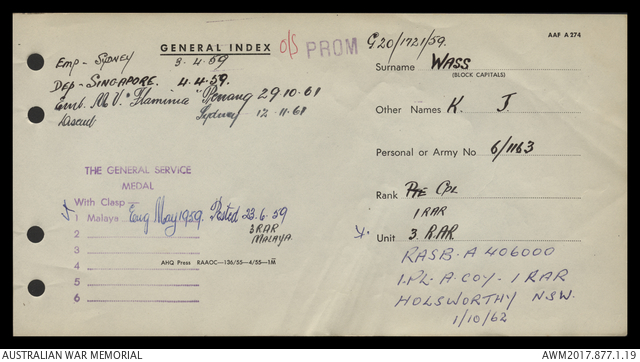 AAF A 274
GENERAL INDEX O/S PROM G20/1721/59.
Emp - SYDNEY 3.4.59
Dep - SINGAPORE. 4.4.59.
Emb. M.V. "Flaminia" Penang 29.10.61
Disemb. Sydney 12.11.61
Surname WASS
(BLOCK CAPITALS)
Other Names K. J.
Personal or Army No 6/1163
Rank Pte Cpl
1 RAR
Unit 3. R.A.R.
RASB-A 406000
1.PL-A COY-1 RAR
HOLSWORTHY N.S.W.
1/10/62
THE GENERAL SERVICE
MEDAL
With Clasp
1 Malaya Eng May 1959. Posted 23.6.59
2 3RAR
MALAYA.
3
4
AHQ Press RAAOC—136/55—4/55—1M
5
6
AUSTRALIAN WAR MEMORIAL
AWM2017.877.1.19